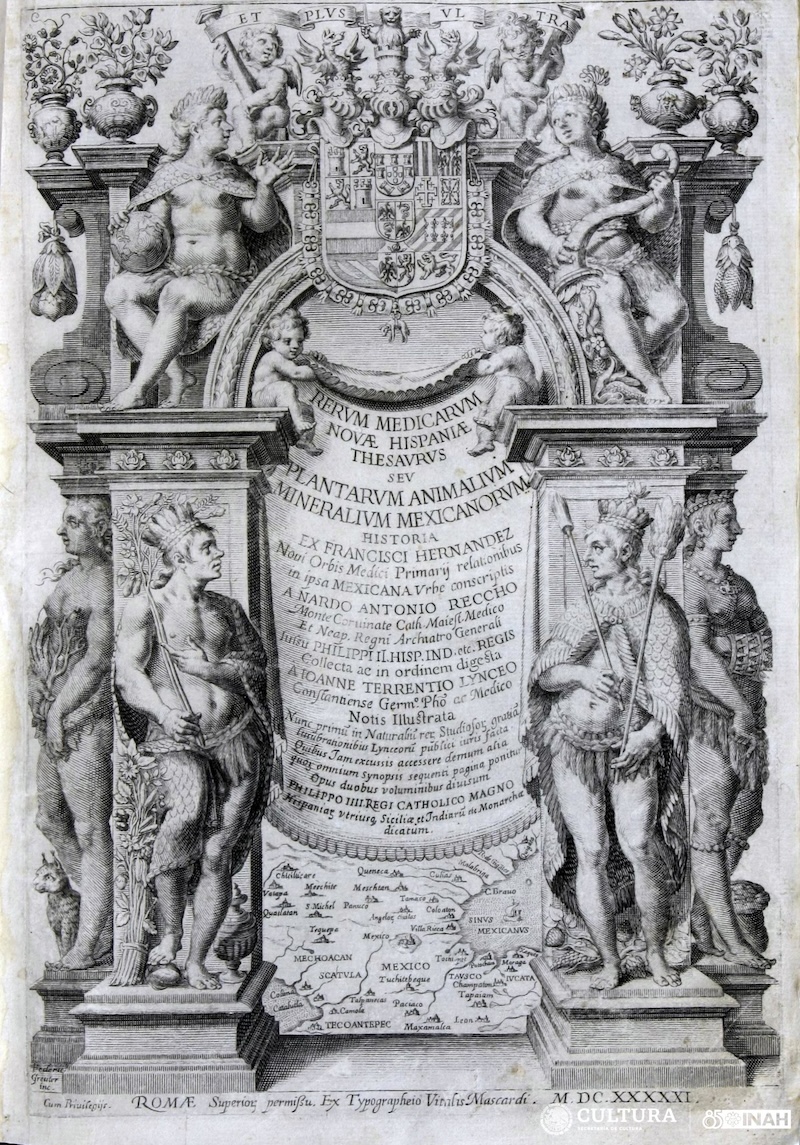 ET PLVS VL TRA
RERVM MEDICARVM
NOVÆ HISPANIÆ
THESAVRVS
SEV
PLANTARVM ANIMALIVM
MINERALIVM MEXICANORVM
HISTORIA
EX FRANCISCI HERNANDEZ
Noui Orbis Medici Primarij relationibus
in ipsa MEXICANA Vrbe conscriptis
A NARDO ANTONIO RECCHO
Monte Coruinate Cath. Maiest. Medico
Et Neap. Regni Archiatro Generali
Iussu PHILIPPI II. HISP. IND. etc. REGIS
Collecta ac in ordinem digesta
A IOANNE TERRENTIO LYNCEO
Constantiense Germ.º Phõ ac Medico
Notis Illustrata
Nunc primũ in Naturaliũ rer. Studiosor. gratiã
lucubrationibus Lynceorũ publici iuris facta.
Quibus Jam excusis accessere demum alia
quor. omnium Synopsis sequenti pagina ponitur
Opus duobus voluminibus diuisum
PHILIPPO IIII REGI CATHOLICO MAGNO
Hispaniar. vtriusq. Siciliæ et Indiarũ etc. Monarchæ
dicatum.
Chicilicare Queneca Culias
Vaiapa Meechite Meschian
Qualatan S. Michel Panuco Tamaco Coloaton C. Brauo
Angelor. ciuitas SINVS
Teguepa Mexico Villa Ricca MEXICANVS
MECHOACAN
SCATVLA MEXICO TAVSCO IVCATA
Tuchitebeque Champaton
Talpanecas Tapasam
Catabulla Camola Pacuaco
TECOANTEPEC Maxamalca Leon
Greuter
inc.
Cum Priuilegijs. ROMÆ Superior. permissu. Ex Typographeio Vitalis Mascardi. M. DC. XXXXXI.
CULTURA
SECRETARÍA DE CULTURA
85 INAH